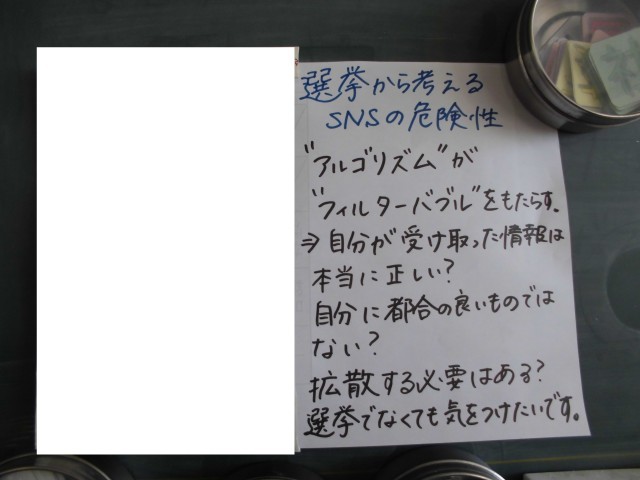 選挙から考える
SNSの危険性
"アルゴリズム"が
"フィルターバブル"をもたらす。
⇒自分が受け取った情報は
本当に正しい?
自分に都合の良いものでは
ない?
拡散する必要はある?
選挙でなくても気をつけたいです。